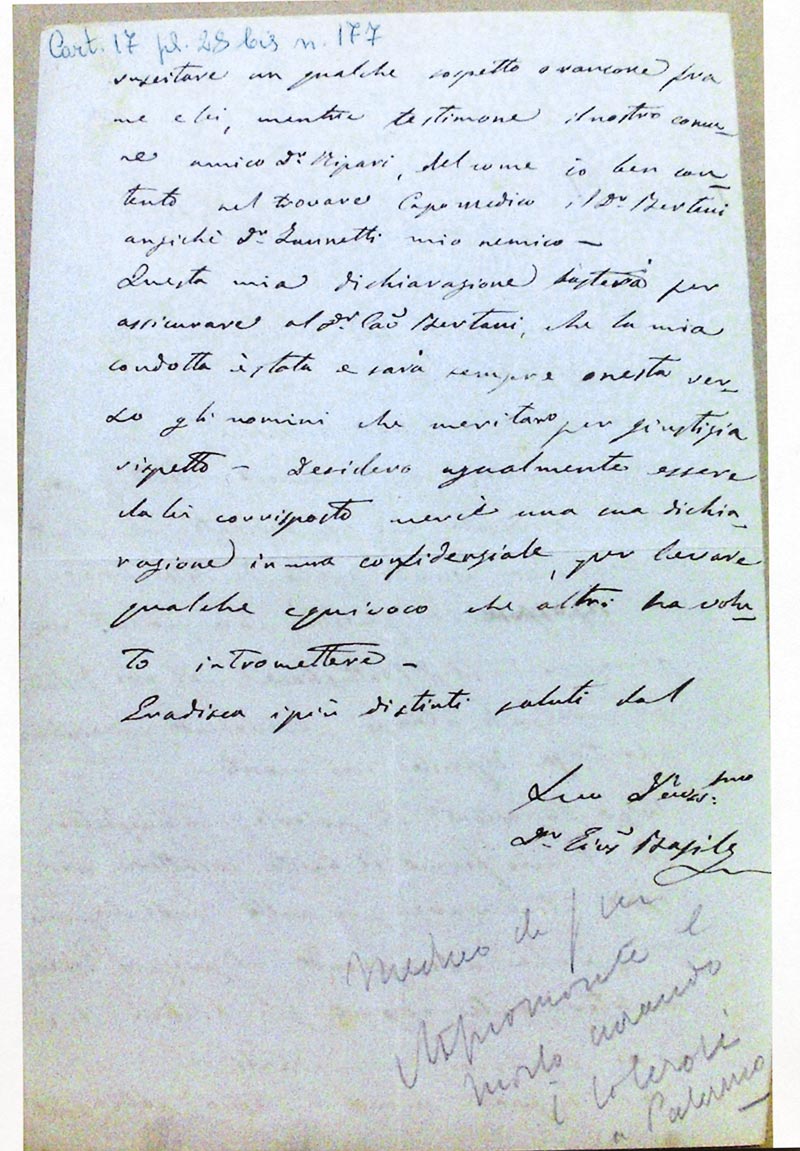 Cart. 17 pl. 28 bis n. 177
suscitare un qualche sospetto o rancore fra
me e lei, mentre testimone il nostro comu-
ne amico Dr Ripari, del come io ben con-
tento nel trovare Capo medico il Dr Bertani
anzichè Dr Iannetti mio nemico –
Questa mia dichiarazione basterà per
assicurare al Dr Cav Bertani, che la mia
condotta è stata e sarà sempre onesta ver-
so gli uomini che meritano per giustizia
rispetto – Desidero ugualmente essere
da lei corrisposto mercè una sua dichia-
razione in una confidenziale, per levare
qualche equivoco che altri ha volu-
to intromettere –
Gradisca i più distinti saluti dal
Suo Devmo
Dr Basile
Medico di
Aspromonte e
morto curando
i colerosi
a Palermo